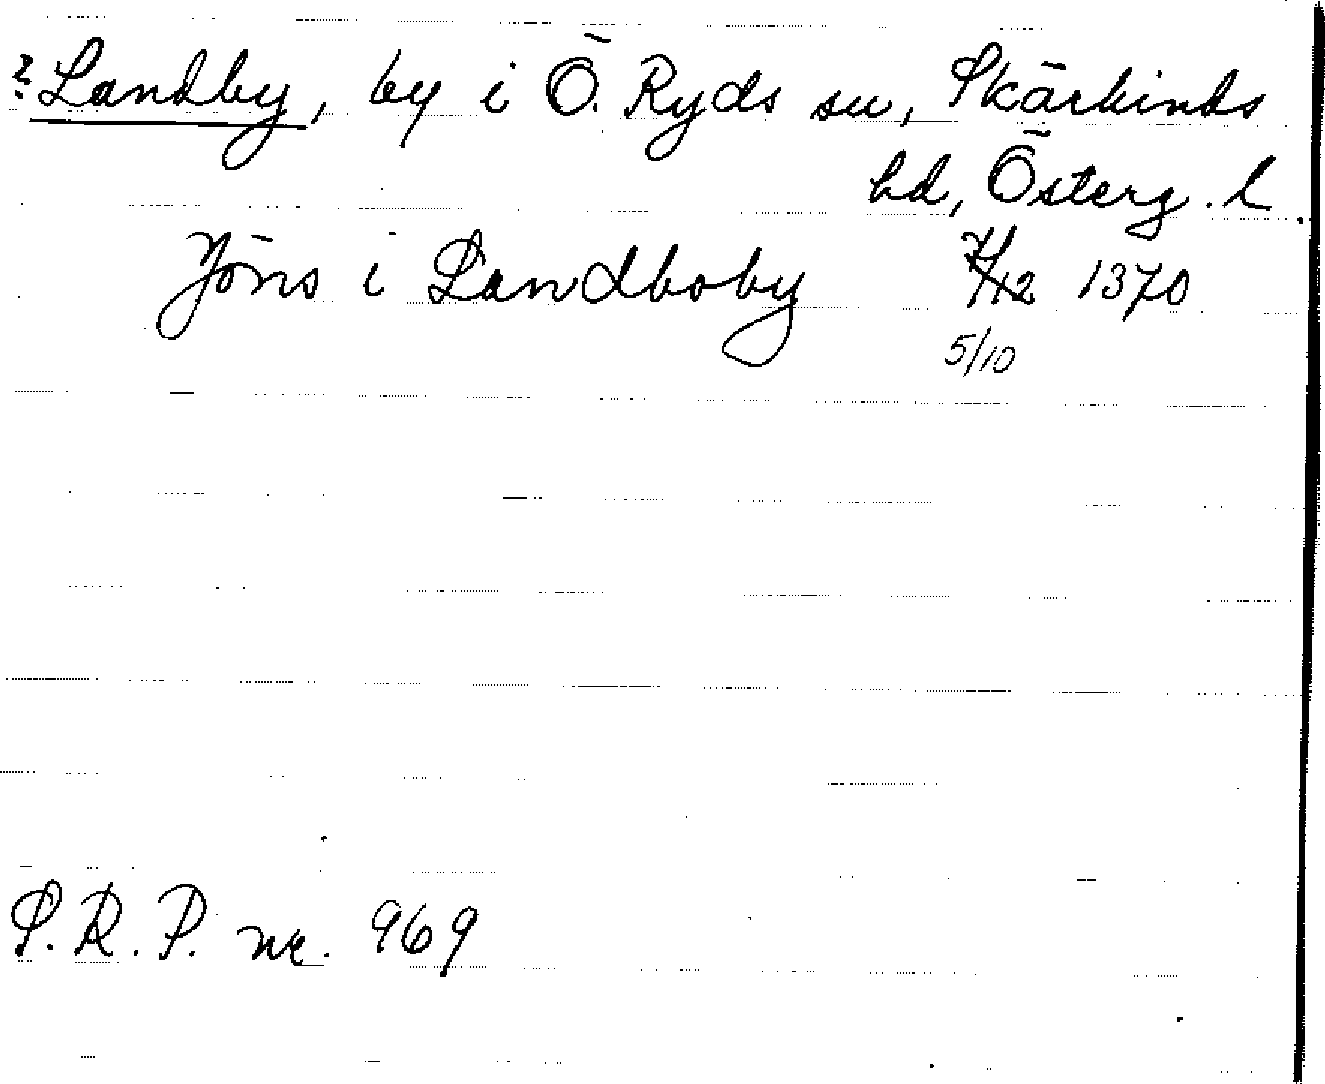 ? Landby, by i Ö. Ryds sn, Skärkinds
hd, Österg. l.
Jöns i Landboby 1370
5/10
S.R.P. nr. 969